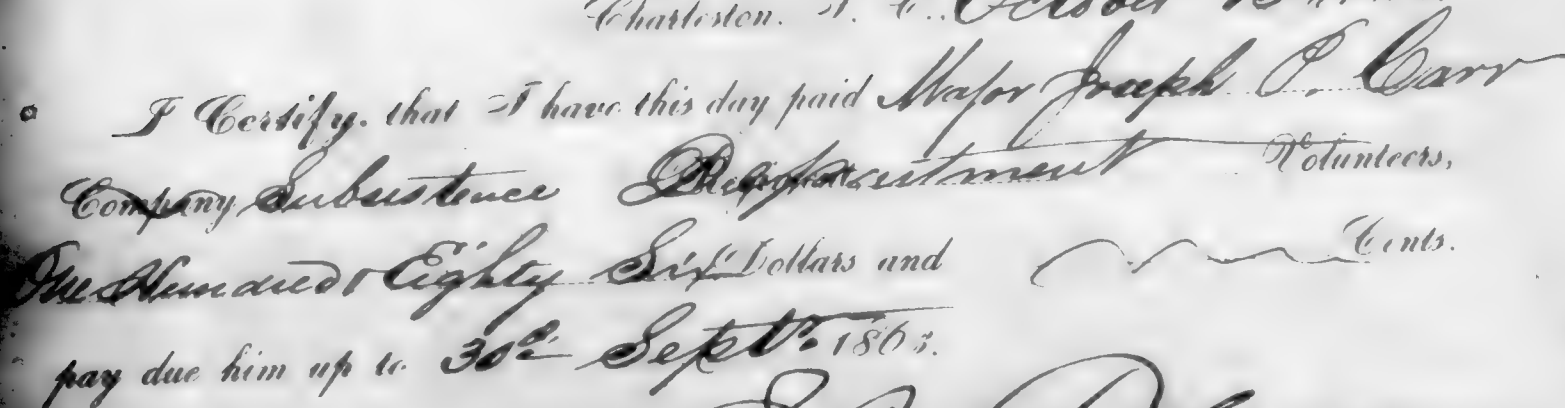 Charleston, S. C. October
I Certify, that I have this day paid Major Joseph P. Carr
Company Subsistence Department Volunteers,
One Hundred & Eighty Six Dollars and Cents.
pay due him up to 30th Septr. 1863.